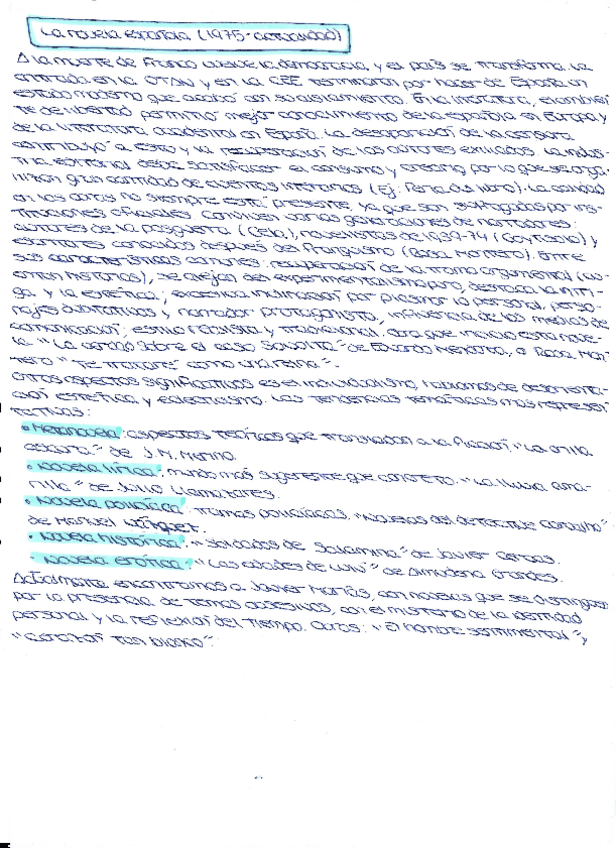 La novela española (1975-actualidad)
A la muerte de Franco vuelve la democracia y el país se transforma. La
entrada en la OTAN y en la CEE terminaron por hacer de España un
estado moderno que acabó con su aislamiento. En la literatura, el ambien
te de libertad permitió mejor conocimiento de la española en Europa y
de la literatura occidental en España. La desaparición de la censura
contribuyó a esto y la recuperación de los autores exiliados. La indus-
tria editorial debe satisfacer el consumo y crearlo por lo que se orga-
nizan gran cantidad de eventos literarios (Ej: Feria del libro). La calidad
en las obras no siempre está presente, ya que son sufragadas por ins-
tituciones oficiales. Conviven varias generaciones de narradores:
autores de la posguerra (Cela), novelistas de 1939-74 (Goytisolo) y
escritores conocidos después del franquismo (Rosa Montero). Entre
sus características comunes: recuperación de la trama argumental (cu-
entan historias), se alejan del experimentalismo puro, destaca la intri-
ga y la estética; excesiva inclinación por plasmar lo personal, perso-
najes dubitativos y narrador protagonista, influencia de los medios de
comunicación; estilo realista y tradicional. Obra que inicia esta nove-
la "La verdad sobre el caso Savolta" de Eduardo Mendoza, o Rosa Mon
tero "Te trataré como una reina".
Otros aspectos significativos es el individualismo, hablamos de desorienta-
ción estética y eclecticismo. Las tendencias temáticas más represen
tativas:
• Metanovela: aspectos teóricos que trasladan a la ficción, "La orilla
oscura" de J.M. Merino.
• Novela lírica: mundo más sugerente que concreto. "La lluvia ama-
rilla" de Julio Llamazares.
• Novela policíaca: tramas policíacas. "Novelas del detective Carvalho"
de Manuel Vázquez.
• Novela histórica: "Soldados de Salamina" de Javier Cercas.
• Novela erótica: "Las edades de Lulú" de Almudena Grandes.
Actualmente encontramos a Javier Marías, con novelas que se distinguen
por la presencia de temas obsesivos, con el misterio de la identidad
personal y la reflexión del tiempo. Obras: "El hombre sentimental" y
"Corazón tan blanco".